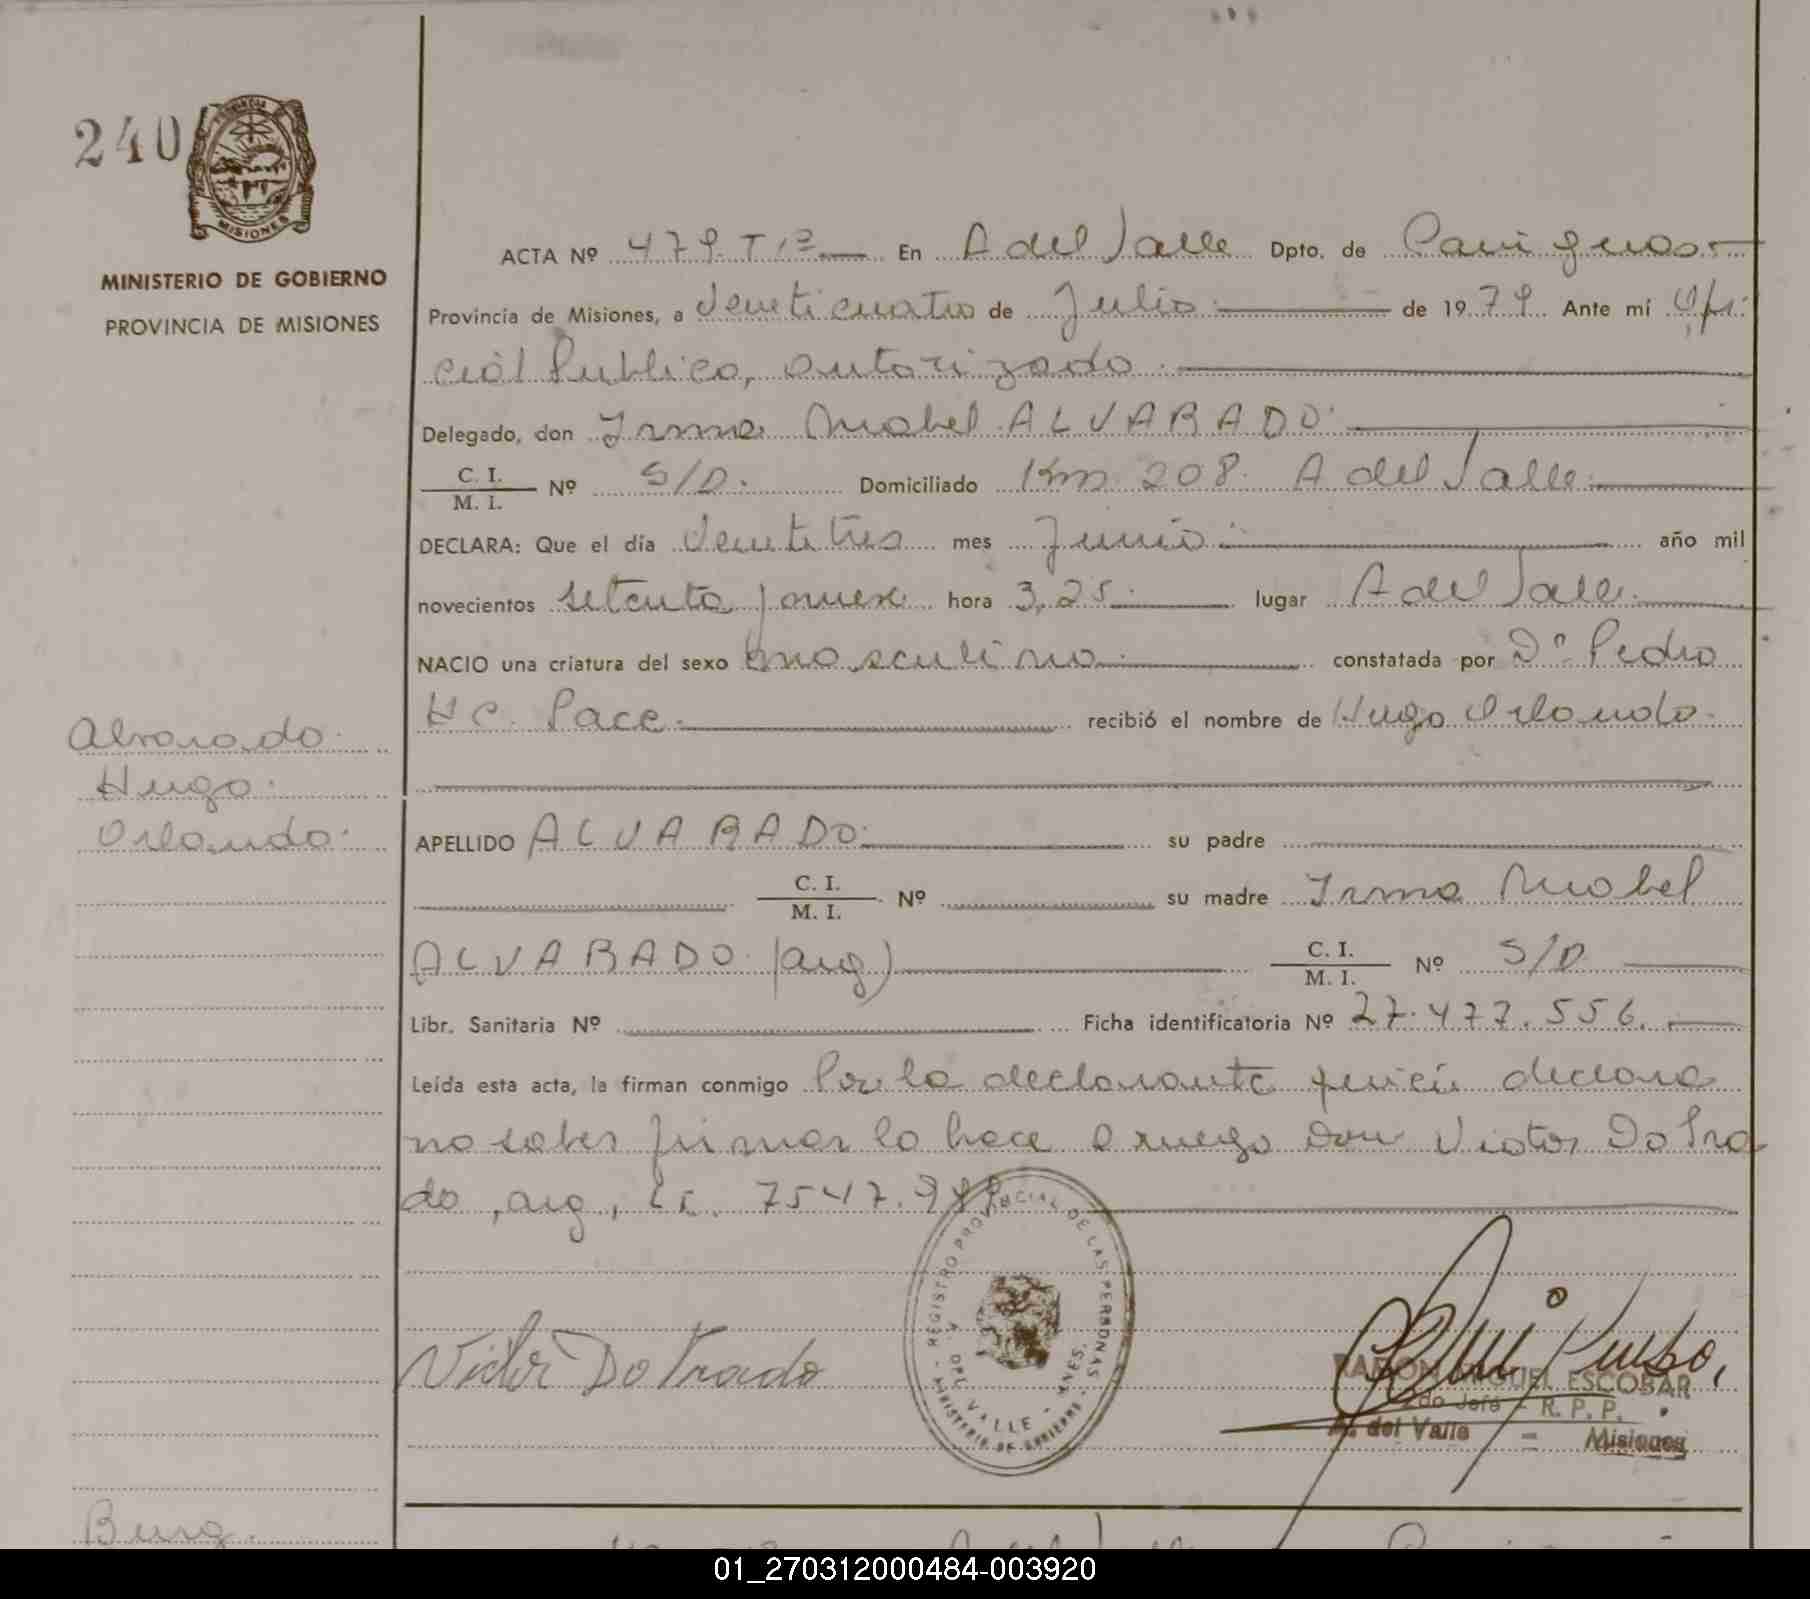 240
MISIONES
MINISTERIO DE GOBIERNO
PROVINCIA DE MISIONES
ACTA Nº 479. T 1º En A del Valle Dpto. de Cainguas.
Provincia de Misiones, a Veinticuatro de Julio de 1979. Ante mí Ofi
cial Publico, autorizado.
Delegado, don Irma Mabel ALVARADO.
C. I.
M. I. Nº S/D. Domiciliado Km 208. A del Valle.
DECLARA: Que el día Veintitres mes Junio año mil
novecientos setenta y nueve hora 3,25. lugar A del Valle.
NACIO una criatura del sexo masculino. constatada por Dº Pedro
H C. Pace. recibió el nombre de Hugo Orlando.
Alvarado.
Hugo.
Orlando.
APELLIDO ALVARADO. su padre
C. I.
M. I. Nº su madre Irma Mabel
ALVARADO. (arg) C. I.
M. I. Nº S/D.
Libr. Sanitaria Nº Ficha identificatoria Nº 27.477.556.
Leída esta acta, la firman conmigo Por la declarante quién declara
no saber firmar lo hace a ruego Don Victor Do Pra
do, arg,
REGISTRO PROVINCIAL DE LAS PERSONAS
A. DEL VALLE - MNES.
MINISTERIO DE GOBIERNO
Victor Do Prado
RAMON MIGUEL ESCOBAR
2do Jefe - R. P. P.
A. del Valle - Misiones
Burg.
01_270312000484-003920